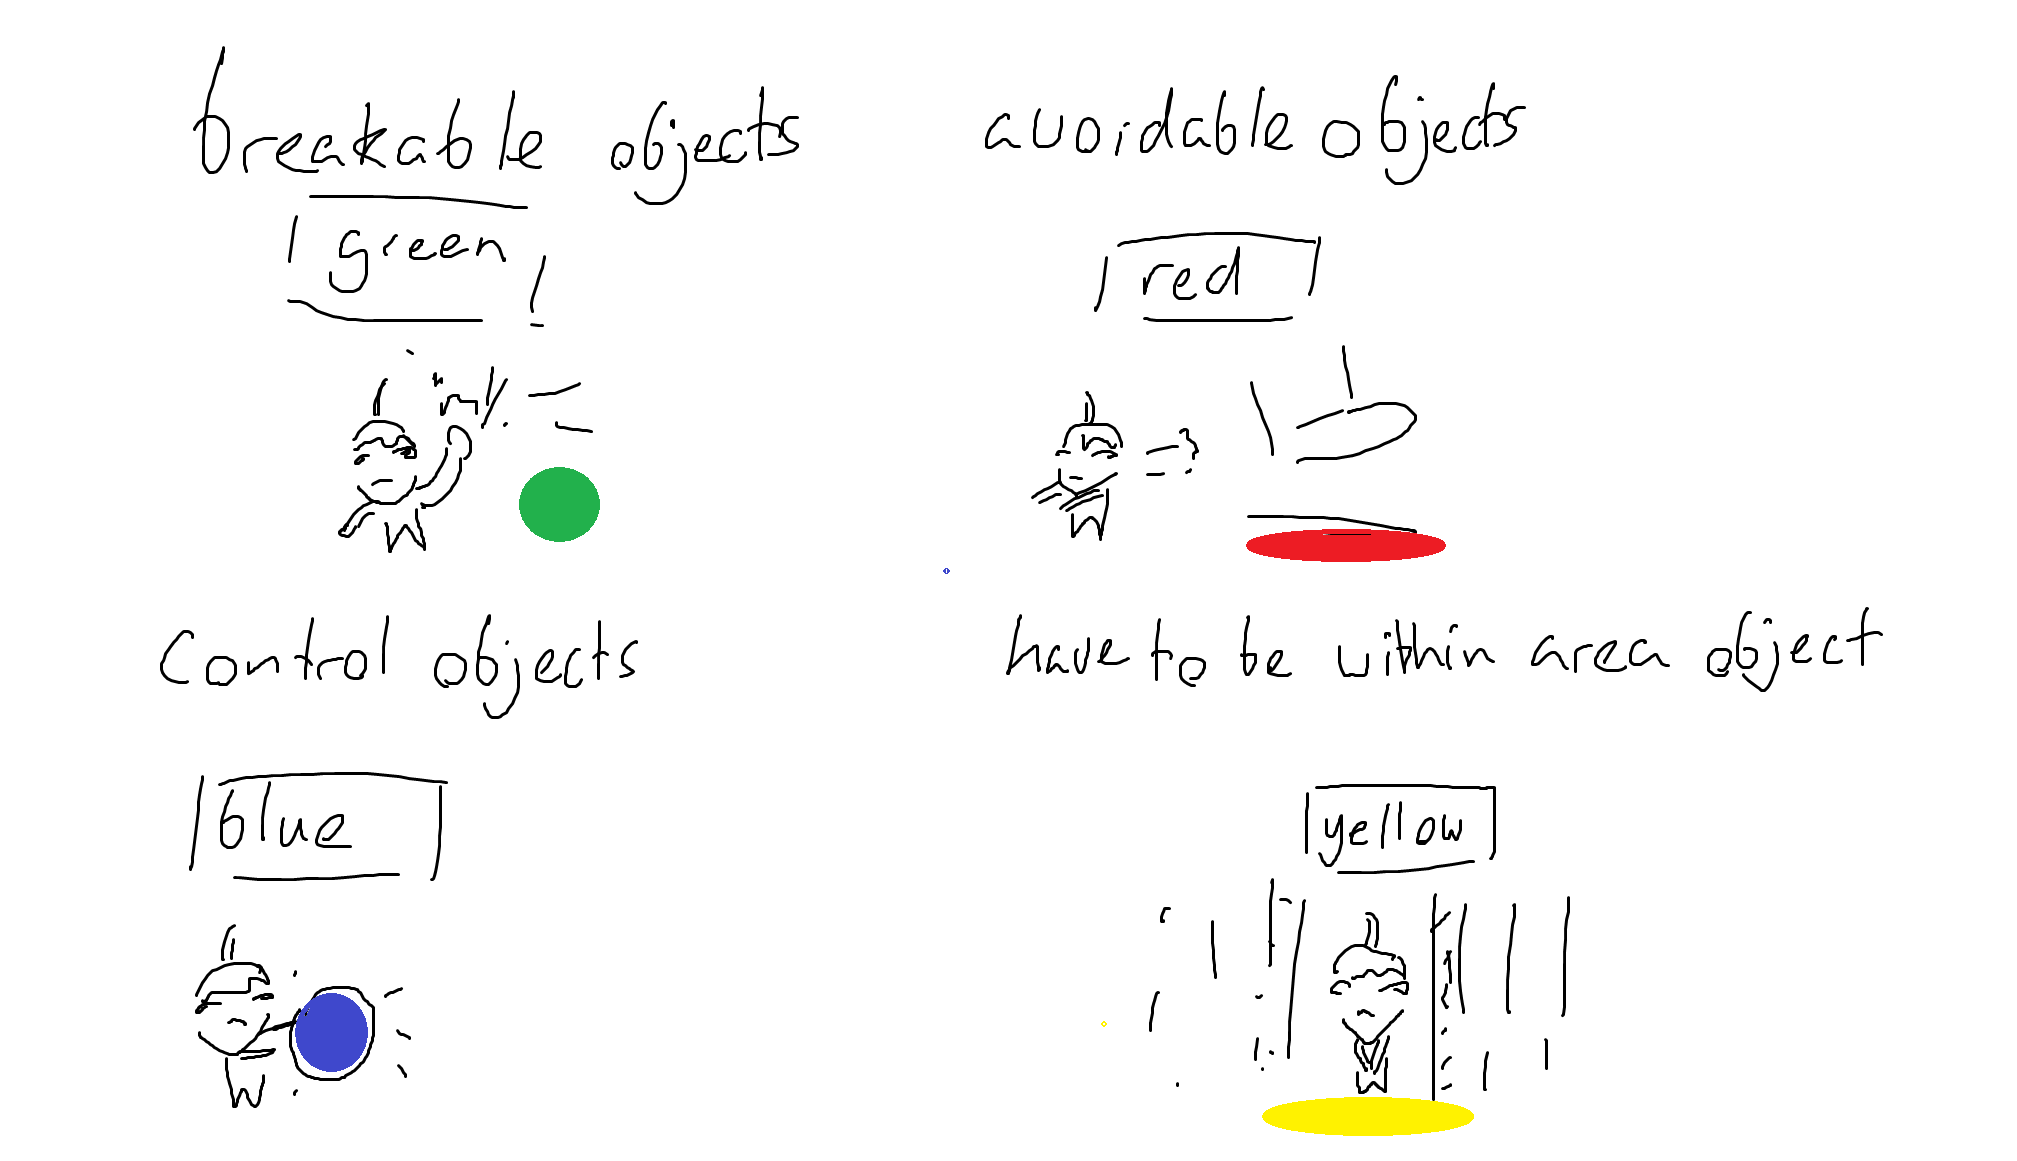 breakable objects
green
avoidable objects
red
control objects
blue
have to be within area object
yellow